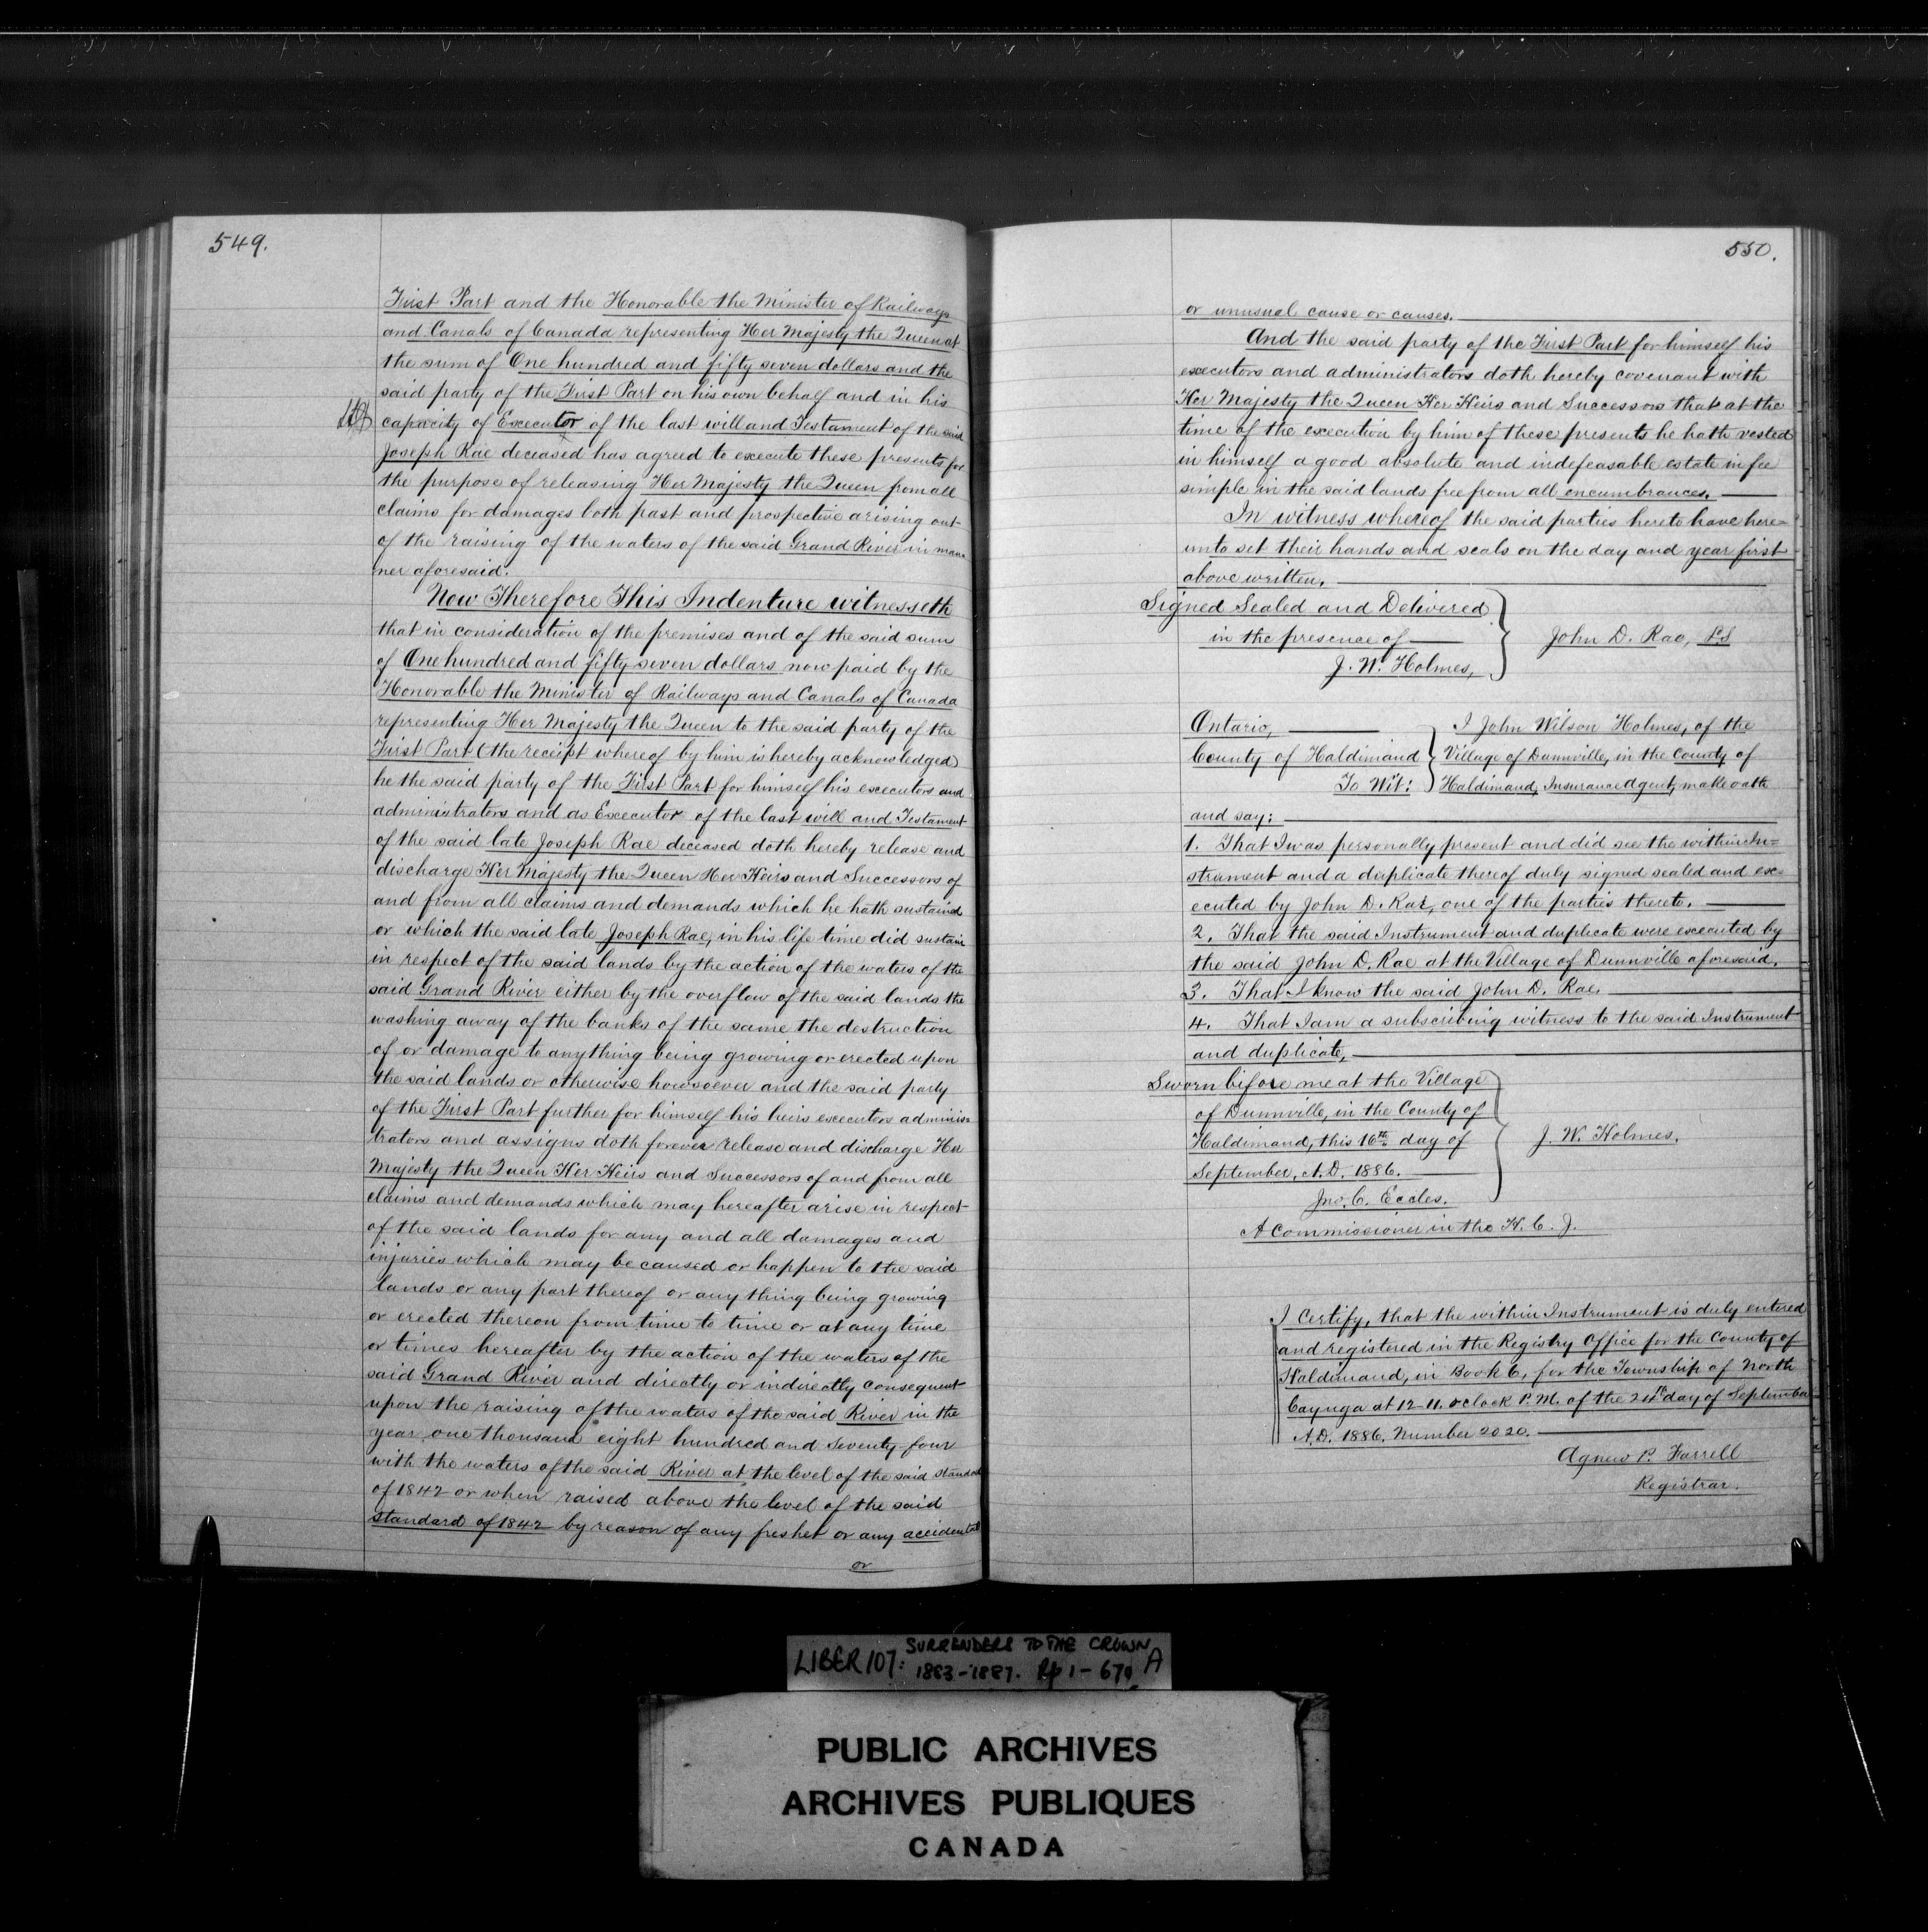 549.
First Part and the Honorable the Minister of Railways
and Canals of Canada representing Her Majesty the Queen at
the sum of One hundred and fifty seven dollars and the
said party of the First Part on his own behalf and in his
capacity of Executor of the last will and Testament of the said
Joseph Rae deceased has agreed to execute these presents for
the purpose of releasing Her Majesty the Queen from all
claims for damages both past and prospective arising out
of the raising of the waters of the said Grand River in man-
ner aforesaid.
Now Therefore This Indenture witnesseth
that in consideration of the premises and of the said sum
of One hundred and fifty seven dollars now paid by the
Honorable the Minister of Railways and Canals of Canada
representing Her Majesty the Queen to the said party of the
First Part (the receipt whereof by him is hereby acknowledged)
he the said party of the First Part for himself his executors and
administrators and as Executor of the last will and Testament
of the said late Joseph Rae deceased doth hereby release and
discharge Her Majesty the Queen Her Heirs and Successors of
and from all claims and demands which he hath sustained
or which the said late Joseph Rae, in his life time did sustain
in respect of the said lands by the action of the waters of the
said Grand River either by the overflow of the said lands the
washing away of the banks of the same the destruction
of or damage to anything being growing or erected upon
the said lands or otherwise howsoever and the said party
of the First Part further for himself his heirs executors adminis=
trators and assigns doth forever release and discharge Her
Majesty the Queen Her Heirs and Successors of and from all
claims and demands which may hereafter arise in respect
of the said lands for any and all damages and
injuries which may be caused or happen to the said
lands or any part thereof or any thing being growing
or erected thereon from time to time or at any time
or times hereafter by the action of the waters of the
said Grand River and directly or indirectly consequent
upon the raising of the waters of the said River in the
year one thousand eight hundred and seventy-four
with the waters of the said River at the level of the said standard
of 1842 or when raised above the level of the said
standard of 1842 by reason of any freshet or any accidental
or
550.
or unusual cause or causes.
And the said party of the First Part for himself his
executors and administrators doth hereby covenant with
Her Majesty the Queen Her Heirs and Successors that at the
time of the execution by him of these presents he hath vested
in himself a good absolute and indefeasable estate in fee
simple in the said lands free from all encumbrances.
In witness whereof the said parties hereto have here=
unto set their hands and seals on the day and year first
above written.
Signed Sealed and Delivered
in the presence of
J. W. Holmes,
John D. Rae, LS
Ontario,
County of Haldimand
To Wit:
I John Wilson Holmes, of the
Village of Dunnville, in the County of
Haldimand, Insurance Agent, make oath
and say:
1. That I was personally present and did see the within In=
strument and a duplicate thereof duly signed sealed and ex=
ecuted by John D. Rae, one of the parties thereto.
2. That the said Instrument and duplicate were executed by
the said John D. Rae at the Village of Dunnville aforesaid.
3. That I know the said John D. Rae.
4. That I am a subscribing witness to the said Instrument
and duplicate,
Sworn before me at the Village
of Dunnville, in the County of
Haldimand, this 16th day of
September, A.D. 1886.
Jno. C. Eccles.
A Commissioner in the H. C. J.
J. W. Holmes.
I Certify, that the within Instrument is duly entered
and registered in the Registry Office for the County of
Haldimand, in Book 6, for the Township of North
Cayuga at 12-11. o'clock P.M. of the 24th day of September
A.D. 1886. Number 2020.
Agnew P. Farrell
Registrar.
LIBER 107: SURRENDERS TO THE CROWN A
1883-1887. Pp 1-670
PUBLIC ARCHIVES
ARCHIVES PUBLIQUES
CANADA